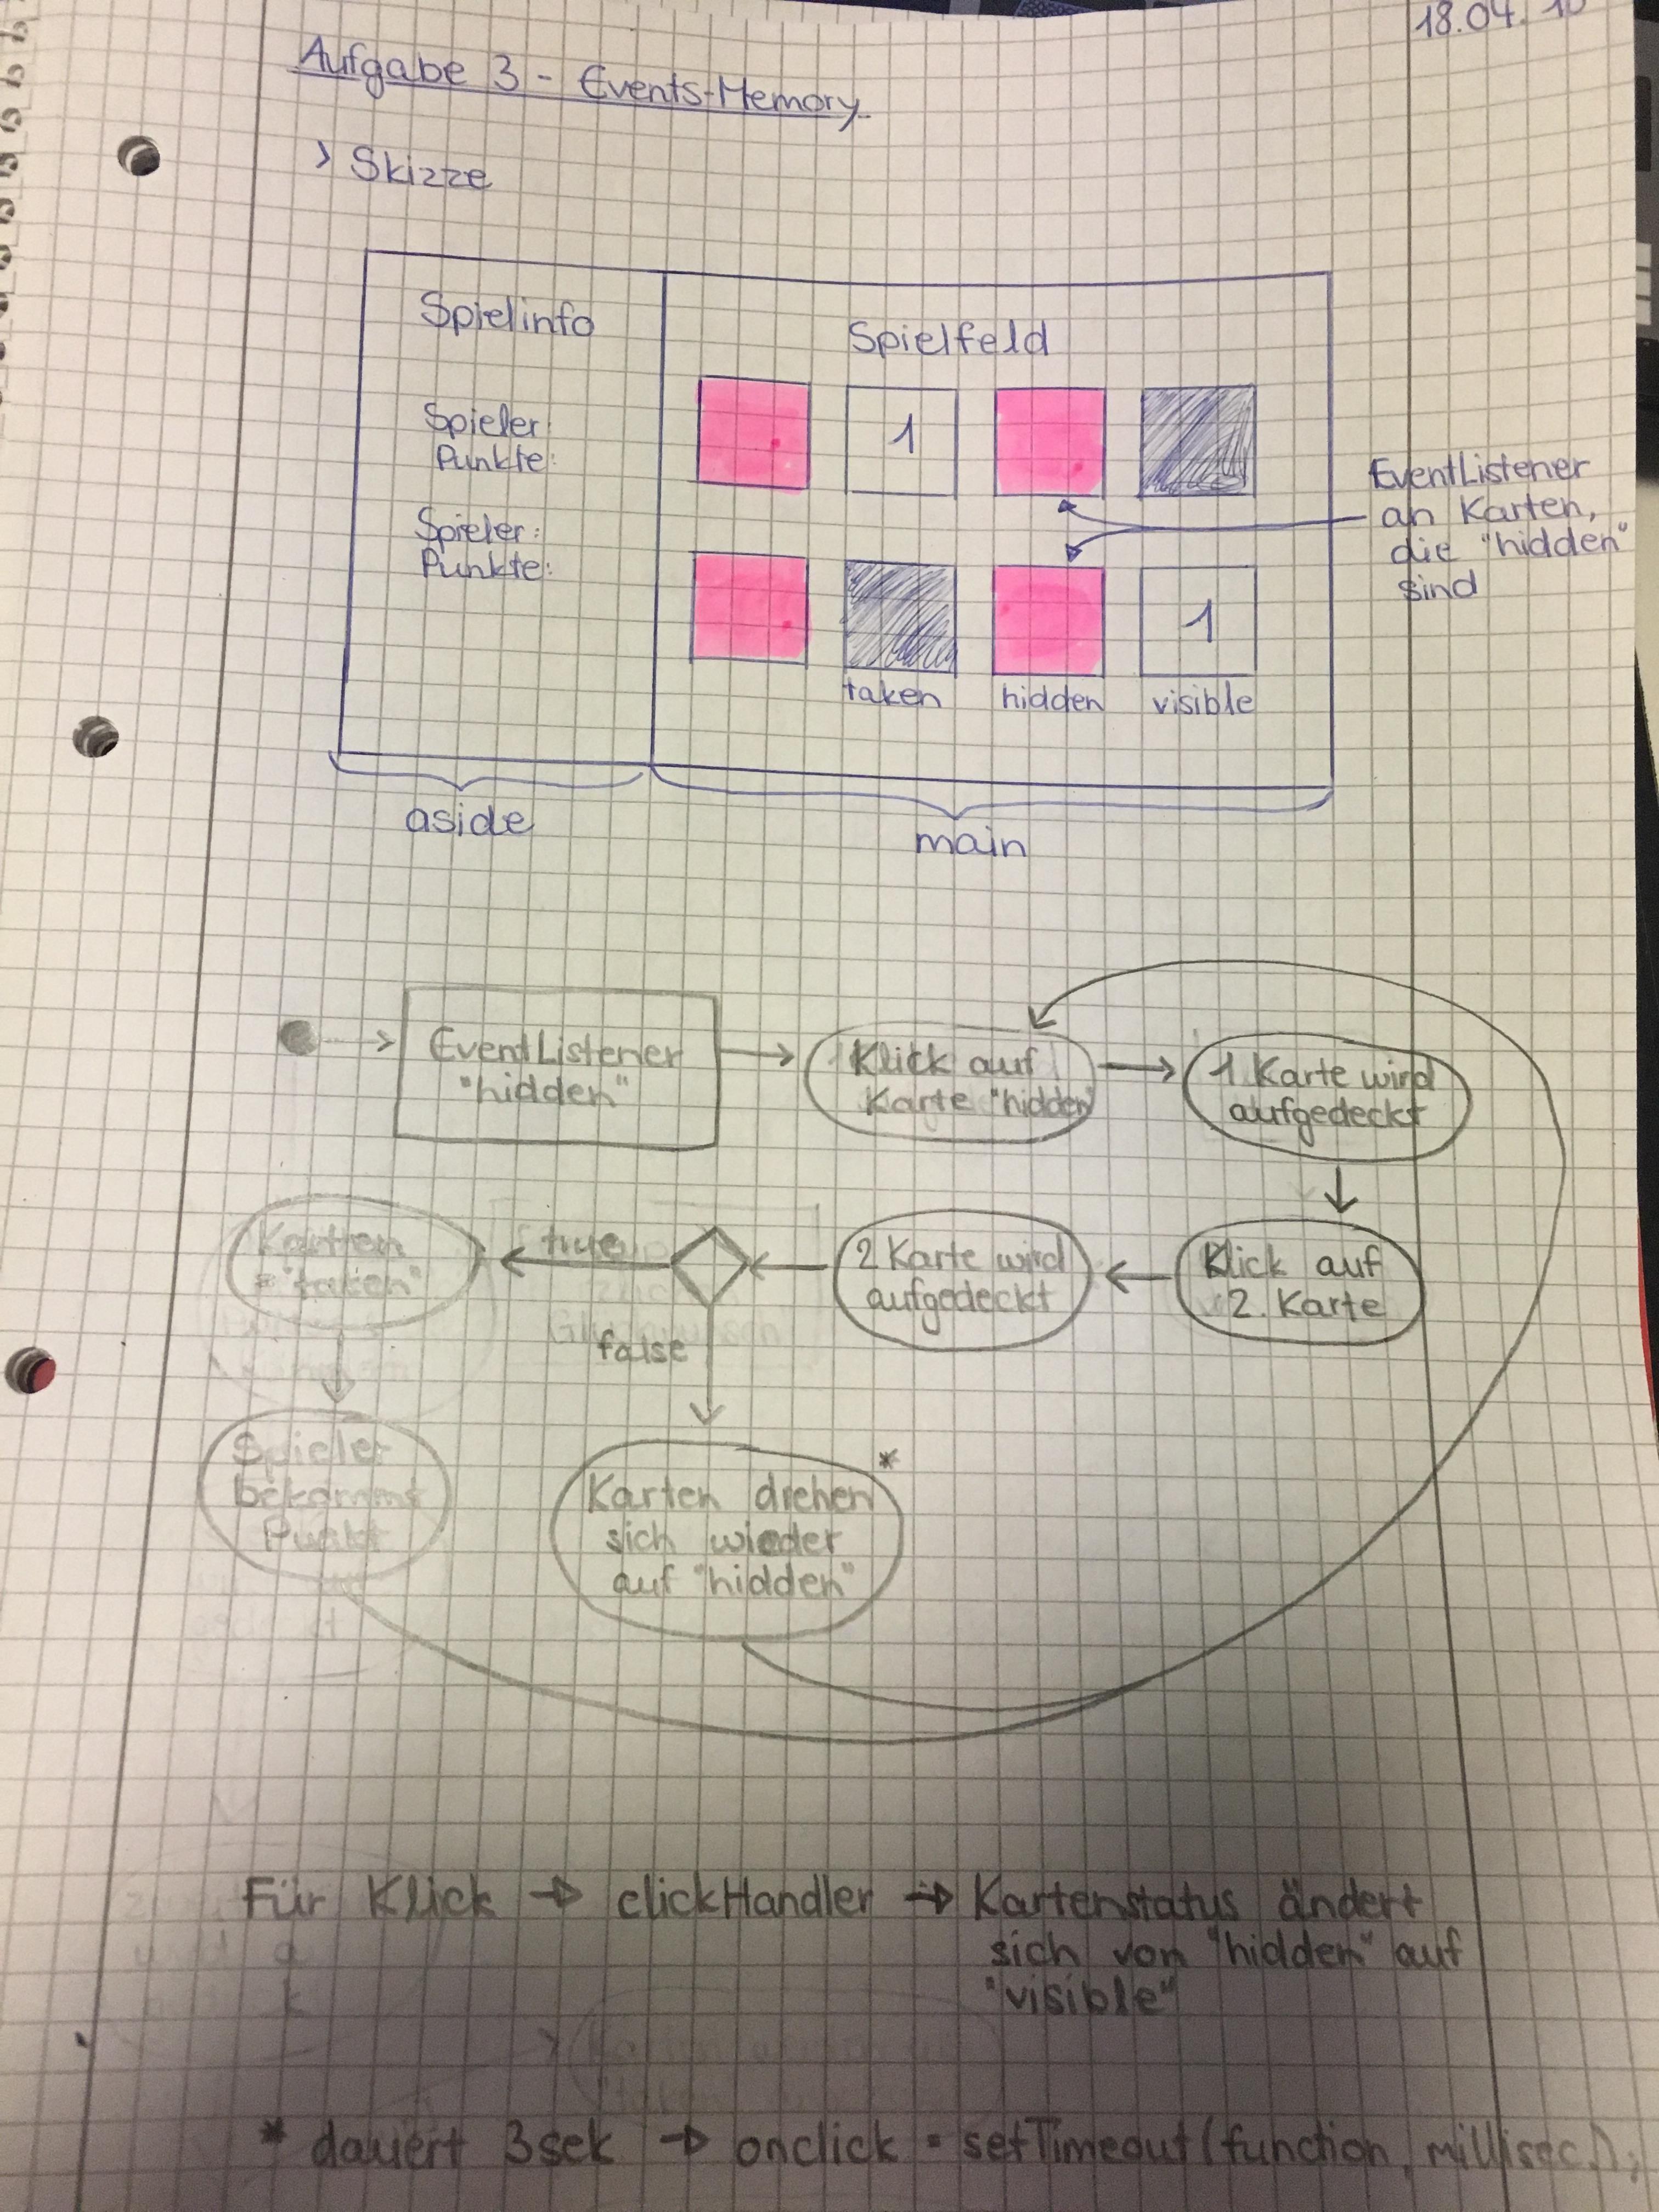 18.04.
Aufgabe 3 - Events-Memory
> Skizze
Spielinfo
Spieler:
Punkte:
Spieler:
Punkte:
Spielfeld
1
1
taken hidden visible
EventListener
an Karten,
die "hidden"
sind
aside
main
EventListener
"hidden"
Klick auf
Karte "hidden"
1 Karte wird
aufgedeckt
Klick auf
2. Karte
2 Karte wird
aufgedeckt
true
false
Karten
= "taken"
Spieler
bekommt
Punkt
Karten drehen *
sich wieder
auf "hidden"
Für Klick → clickHandler → Kartenstatus ändert
sich von "hidden" auf
"visible"
* dauert 3sek → onclick = setTimeout(function, millisec.);